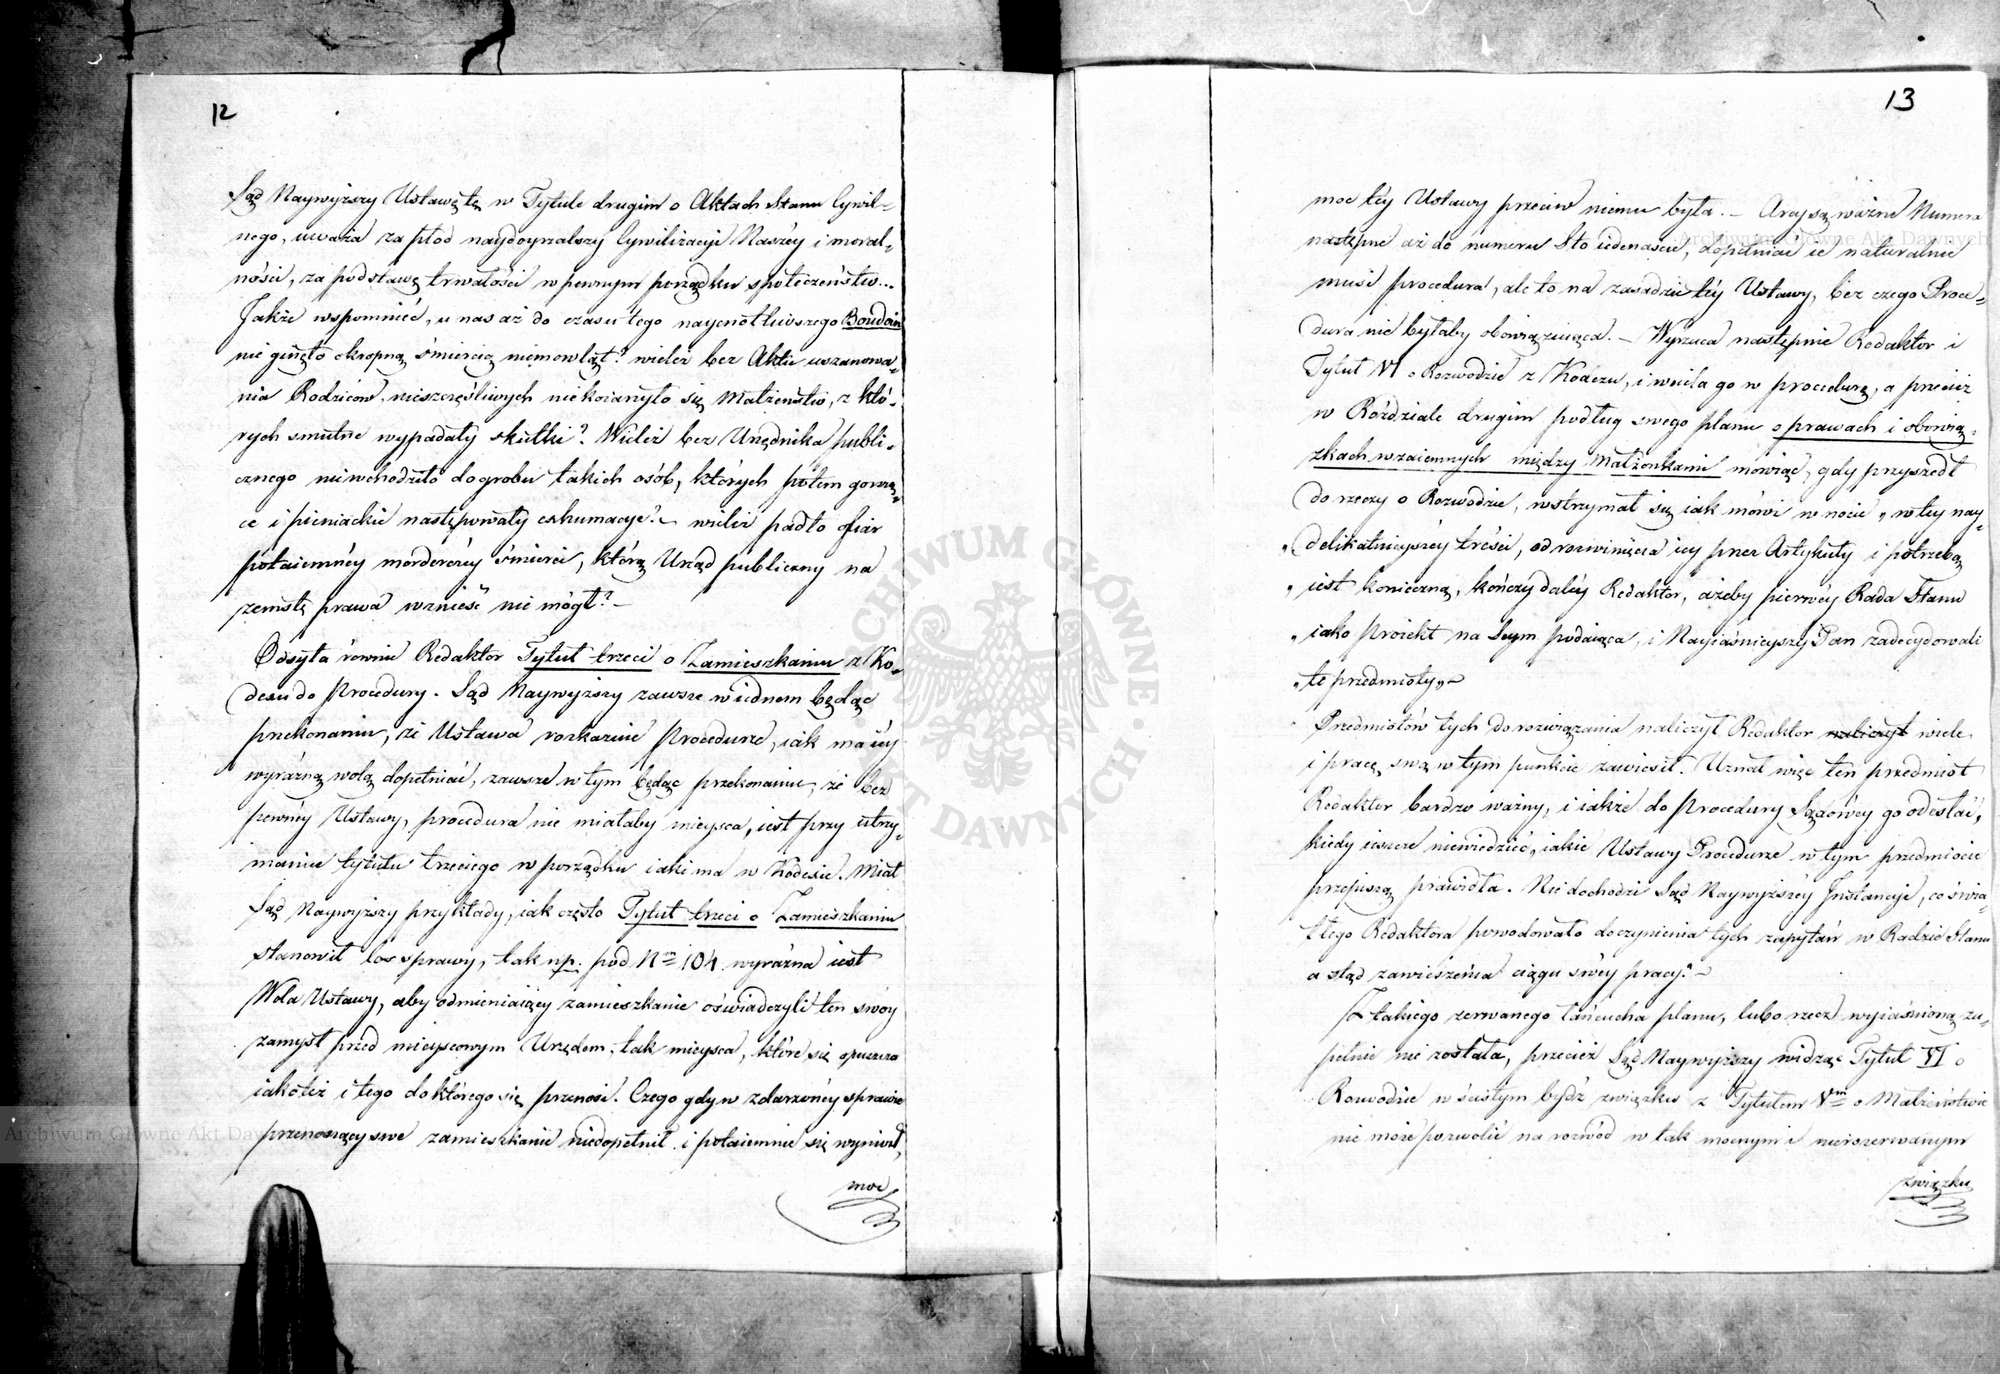 12
Sąd Naywyższy Ustawę tę w Tytule drugim o Aktach Stanu Cywil=
nego, uważa za płod naydoyrzalszy Cywilizacyi Naszéy i moral=
ności, za podstawę trwałości w pewnym porządku społeczeństw...
Jakże wspomnieć, u nas aż do czasu tego naycnotliwszego Boudoin
nie ginęło okropną śmiercią niemowląt? wieleż bez Aktu uszanowa=
nia Rodziców, nieszczęśliwych nie koiarzyło się Małżeństw, z któ=
rych smutne wypadały skutki? Wieleż bez Urzędnika publi=
cznego niewchodziło do grobu takich osób, których potem gorszą=
ce i pieniackie następowały exhumacye? – wieleż padło ofiar
potaiemnéy morderczéy śmierci, którą Urząd publiczny na
zemstę prawa wznieść nie mógł? –
Odsyła równie Redaktor Tytuł trzeci o Zamieszkaniu z Ko=
dexu do Procedury. Sąd Naywyższy zawsze w iednem będąc
przekonaniu, że Ustawa rozkazuie Procedurze, iak ma iéy
wyraźną wolą dopełniać, zawsze w tym będąc przekonaniu, że bez
pewnéy Ustawy, procedura nie miałaby mieysca, iest przy utrzy=
maniu tytułu trzeciego w porządku iaki ma w Kodexie. Miał
Sąd Naywyższy przykłady, iak często Tytuł trzeci o Zamieszkaniu
stanowił los sprawy, tak np. pod Nrm 104 wyraźna iest
Wola Ustawy, aby odmieniaiący zamieszkanie oświadczyli ten swóy
zamysł przed mieyscowym Urzędem, tak mieysca, które się opuszcza
iakoteż i tego do którego się przenosi. Czego gdy w zdarzonéy sprawie
przenoszący swe zamieszkanie niedopełnił i potaiemnie się wyniósł,
moc
13
moc téy Ustawy przeciw niemu była. – Arcy są ważne Numera
następne aż do numeru Sto iedenaście, dopełniać ie naturalnie
musi procedura, ale to na zasadzie téy Ustawy, bez czego Proce=
dura nie byłaby obowiązuiąca. – Wyrzuca następnie Redaktor i
Tytuł VI o Rozwodzie z Kodexu, i wciela go w procedurę, a przecież
w Rozdziale drugim podług swego planu o prawach i obowią=
zkach wzaiemnych między Małżonkami mówiąc, gdy przyszedł
do rzeczy o Rozwodzie, wstrzymał się iak mówi w nocie „w tey nay=
„delikatnieyszéy treści, od rozwinięcia iey przez Artykuły i potrzebą
„iest konieczną, kończy daléy Redaktor, ażeby pierwéy Rada Stanu
„iako proiekt na Seym podaiąca, i Nayiaśnieyszy Pan zadecydowali
„te przedmioty„ –
Przedmiotów tych do rozwiązania naliczył Redaktor naliczył wiele,
i pracę swą w tym punkcie zawiesił. Uznał więc ten przedmiot
Redaktor bardzo ważny, i iakże do Procedury Sądowéy go odesłać,
kiedy ieszcze niewiedzieć, iakie Ustawy Procedurze w tym przedmiocie
przepiszą prawidła. Nie dochodzi Sąd Naywyższéy Instancyi, co świa=
tłego Redaktora powodowało do czynienia tych zapytań w Radzie Stanu
a stąd zawieszenia ciągu swéy pracy? –
Z takiego zerwanego łańcucha planu, lubo rzecz wyiaśnioną zu=
pełnie nie została, przecież Sąd Naywyższy widząc Tytuł VI o
Rozwodzie w ścisłym bydź związku z Tytułem Vm o Małżeństwie
nie może pozwolić na rozwód w tak mocnym i nierozerwanym
związku
ARCHIWUM GŁÓWNE AKT DAWNYCH
Archiwum Główne Akt Dawnych
Archiwum Główne Akt Dawnych